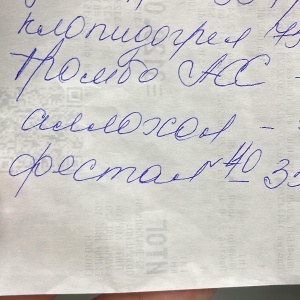 клопидогрел 75
Тромбо АСС
аллохол -
фестал №40 - 35